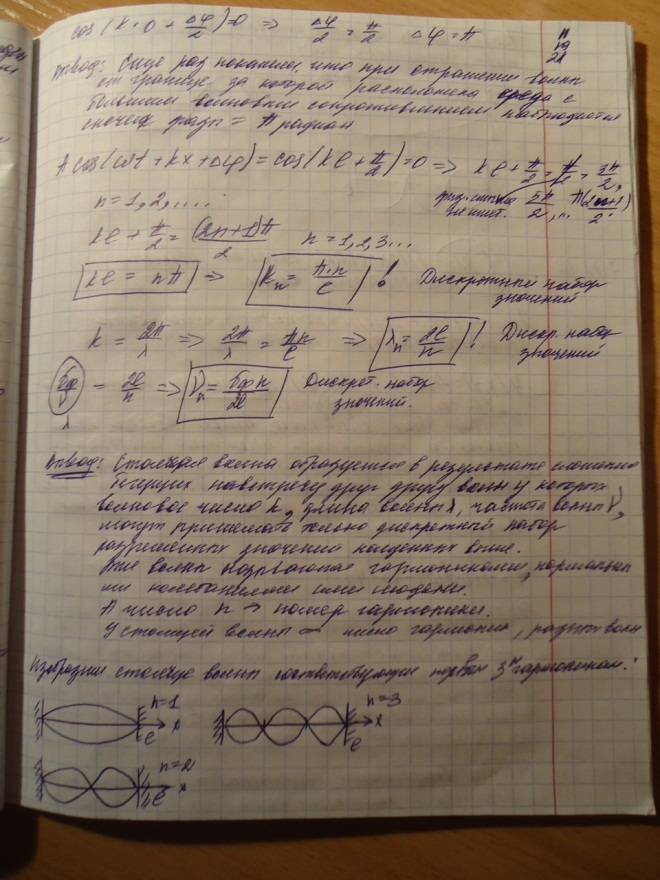 cos(k·0 + Δφ/2)=0 => Δφ/2 = π/2 Δφ = π
11
19
21
Вывод: Еще раз показали, что при отражении волны
от границы за которой расположена среда с
большим волновым сопротивлением наблюдается
скачек фазы = π радиан
A cos(ωt + kx + Δφ) = cos(kℓ + π/2) = 0 => kℓ + π/2 = π/2 = 3π/2,
n = 1, 2, ....
физ. смысла 5π/2, .. π(2n+1)/2.
не имеет.
kℓ + π/2 = (2n+1)π/2 n = 1, 2, 3...
kℓ = nπ => kn = π·n/ℓ ! Дискретный набор
значений
k = 2π/λ => 2π/λ = πn/ℓ => λn = 2ℓ/n ! Дискр. набор
значений
υф/ν = 2ℓ/n => νn = υф n/2ℓ Дискрет. набор
λ
значений.
Вывод: Стоячая волна образуется в результате сложения
бегущих навстречу друг другу волн у которых
волновое число k, длина волны λ, частота волны ν,
могут принимать только дискретный набор
разрешенных значений найденных выше.
волны называются гармониками, нормальны
ми колебаниями или модами.
А число n -> номер гармоники.
У стоячей волны ∞ число гармоник,
Изобразим стоячие волны соответствующие первым 3м гармоникам:
n=1
x
ℓ
n=3
x
ℓ
n=2
x
ℓ